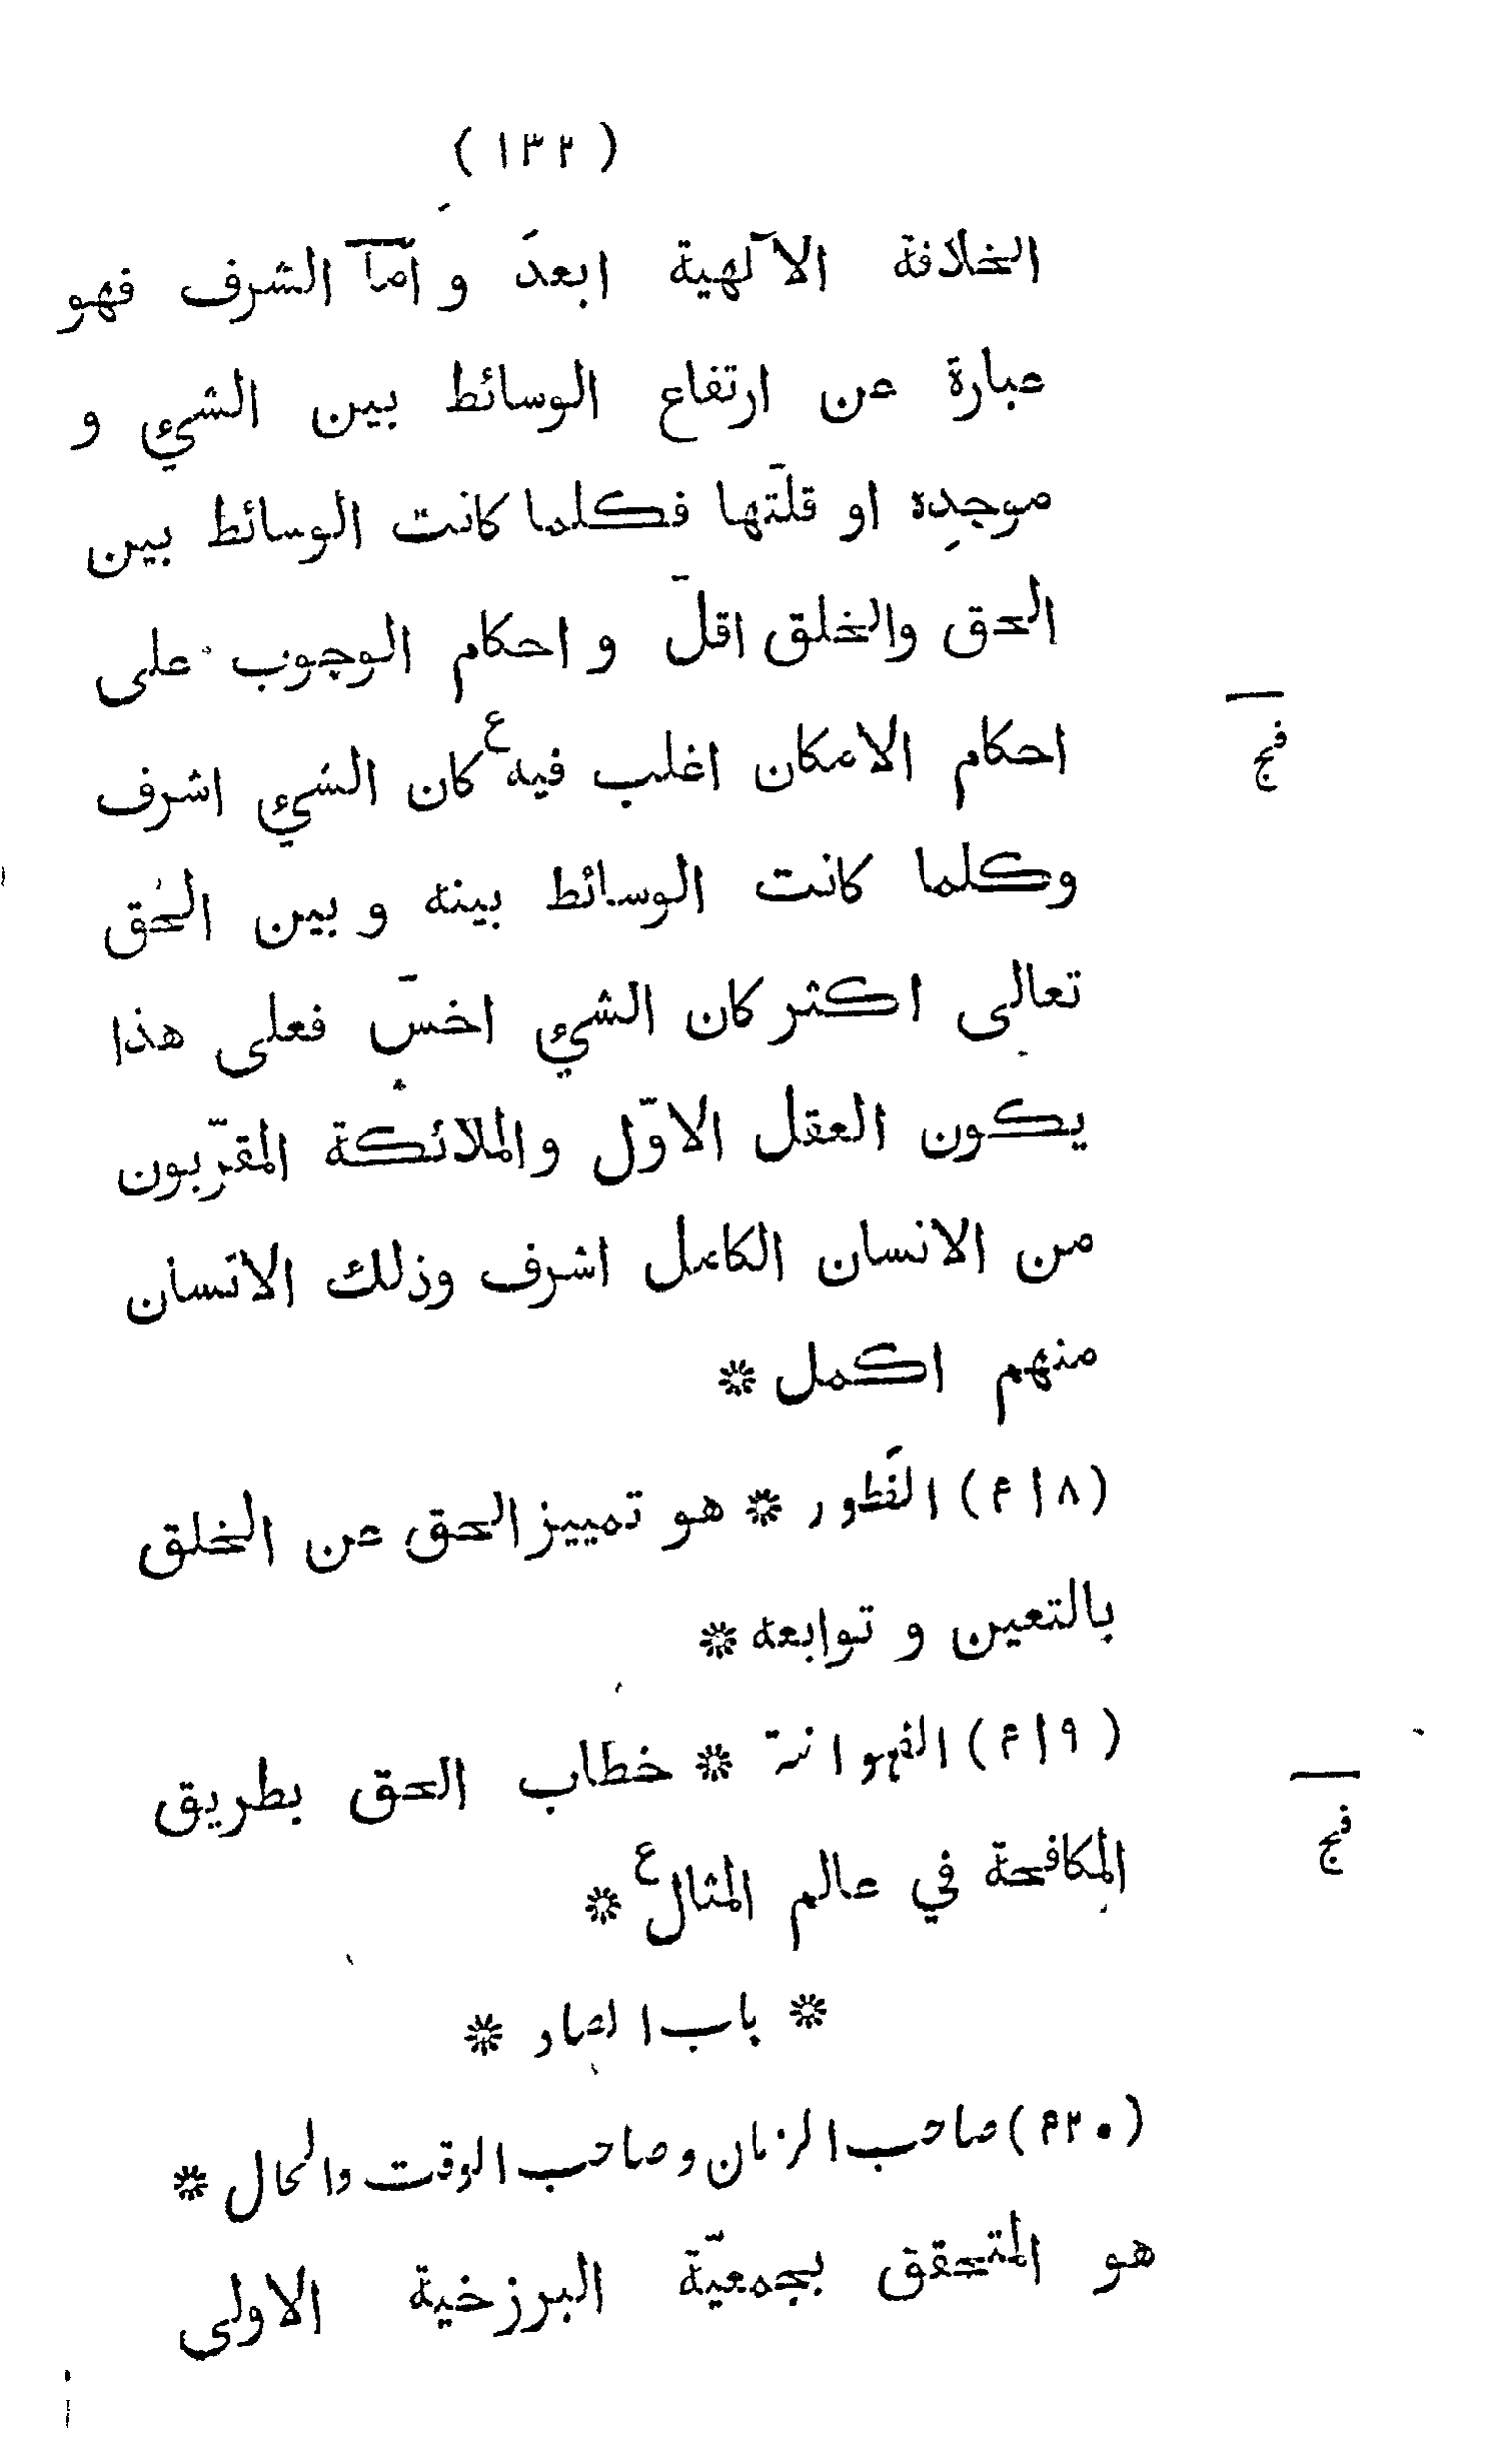 ( ١٣٢ )
الخلافة الآلهية ابعد و امّا الشرف فهو
عبارة عن ارتفاع الوسائط بين الشئ و
موجِده او قلّتها فكلما كانت الوسائط بين
الحق والخلق اقلّ و احكام الوجوب على
احكام الامكان اغلب فيه ع كان الشئ اشرف
فج
وكلما كانت الوسائط بينه و بين الحق
تعالى اكثر كان الشئ اخسّ فعلى هذا
يكون العقل الاوّل والملائكة المقرّبون
من الانسان الكامل اشرف وذلك الانسان
منهم اكمل *
(٤١٨) الفَطور * هو تمييز الحق عن الخلق
بالتعين و توابعه *
(٤١٩) الفهوانية * خطاب الحق بطريق
المكافحة في عالم المثال ع *
فج
* باب الصاد *
(٤٢٠) صاحب الزمان وصاحب الوقت والحال *
هو المتحقق بجمعيّة البرزخية الاولى